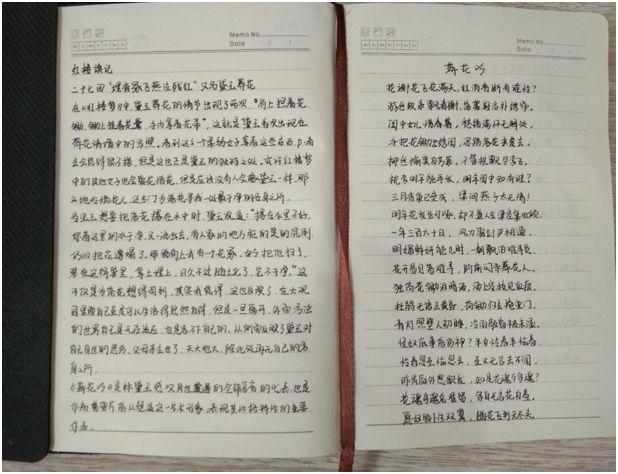 Memo No.
Date / /
红楼读记
二十七回 "埋香冢飞燕泣残红" 又名黛玉葬花
在《红楼梦》中,黛玉葬花的情节出现了两次,"肩上担着花
锄,锄上挂着花囊,手内拿着花帚",这就是黛玉首次出现在
葬花情境中的
会觉得很,但是这也正是黛玉的独特之处,或许红楼梦
中的其他女子也会葬花,但是应该没有人会像黛玉一样,那
当宝玉想要把落花撂在水中时,黛玉说道:"撂在水里不好,
你看这里的水干净,只一流出去,有人家的地方脏的臭的混倒,
仍旧把花遭塌了,那畸角上我有一个花冢,如今把他扫了,
装在这绢袋里,拿土埋上,日久不过随土化了,岂不干净。"这
不仅是为落花想得周到,其实我觉得,这也反映了,在大观
园里面自己是可以生活得悠然自得,但是一旦离开,外面
的世界自己是无法适应,也是容不下自己的,从侧面反映了黛玉对
自己身世的悲伤,父母亲去世了,天大地大,除此处再无自己的容
身之所。
《葬花吟》是林黛玉感叹身世遭遇的全部哀音的代表,也是
作者曹雪芹
作品。
Memo No.
Date / /
葬花吟
花谢花飞花满天,红消香断有谁怜?
游丝软系飘春榭,落絮轻沾扑绣帘。
闺中女儿惜春暮,愁绪满怀无
手把花锄出绣闺,忍踏落花来复去。
柳丝榆荚自芳菲,不管桃飘与李飞。
桃李明年能再发,明年闺中知有谁?
三月香巢已垒成,梁间燕子太无情!
明年花发虽可啄,却不道人去梁空巢也倾。
一年三百六十日,风刀霜剑严相逼。
明媚鲜妍能几时,一朝飘泊难寻觅。
花开易见落难寻,阶前闷杀葬花人。
独倚花锄泪暗洒,洒上空枝见血痕。
杜鹃无语正黄昏,荷锄归去掩重门。
青灯照壁人初睡,冷雨敲窗被未温。
怪奴底事倍伤神?半为怜春半恼春。
怜春忽至恼忽去,至又无言去不闻。
昨宵庭外悲歌发,知是花魂与鸟魂?
花魂鸟魂总难留,鸟自无言花自羞。
愿奴胁下生双翼,随花飞到天尽头。